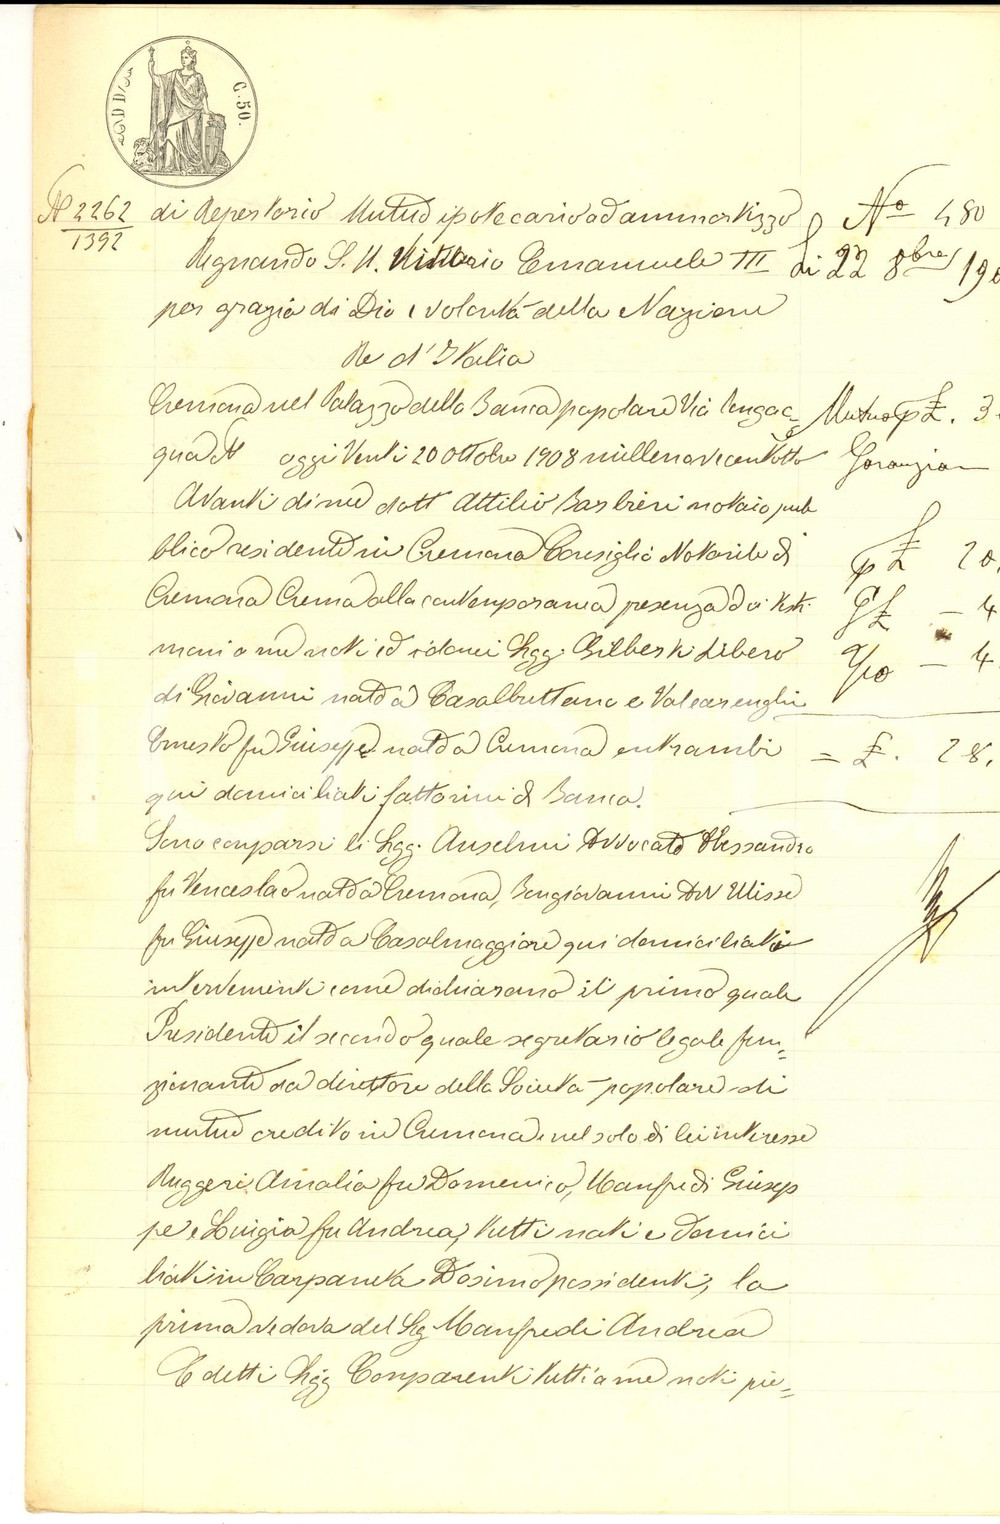 C. 50.
N 2262
1392
di Repertorio Mutuo ipotecario ad ammortizzo
Regnando S. M. Vittorio Emanuele III
per grazia di Dio e volontà della Nazione
Re d'Italia
Cremona nel Palazzo della Banca popolare Via Lungac=
qua N oggi Venti 20 Ottobre 1908 millenovecentotto
Avanti di me dott Attilio Barbieri notaio pub
blico residente in Cremona Consiglio Notarile di
Cremona Crema alla contemporanea presenza dei testi
moni a me noti ed idonei Sgg. Gilberti Libero
di Giovanni nato a Casalbuttano e Valcarenghi
Ernesto fu Giuseppe nato a Cremona entrambi
qui domiciliati fattorini di Banca.
Sono comparsi li Sgg. Anselmi Avvocato Alessandro
fu Venceslao nato a Cremona, Bongiovanni Avv Ulisse
fu Giuseppe nato a Casalmaggiore qui domiciliati
intervenienti come dichiarano il primo quale
Presidente il secondo quale segretario legale fun=
zionante da direttore della Società popolare di
mutuo credito in Cremona e nel solo di lei interesse
Ruggeri Amalia fu Domenico, Manfredi Giusep
pe e Luigia fu Andrea, tutti nati e domici
liati in Carpaneta Dosimo possidenti, la
prima vedova del Sg Manfredi Andrea
E detti Sgg Comparenti tutti a me noti pie=
No 480
Li 22 8bre 190
Mutuo p £. 3
Garanzia
p £ 20.
£ – 4
1/10 – 4
= £. 28.